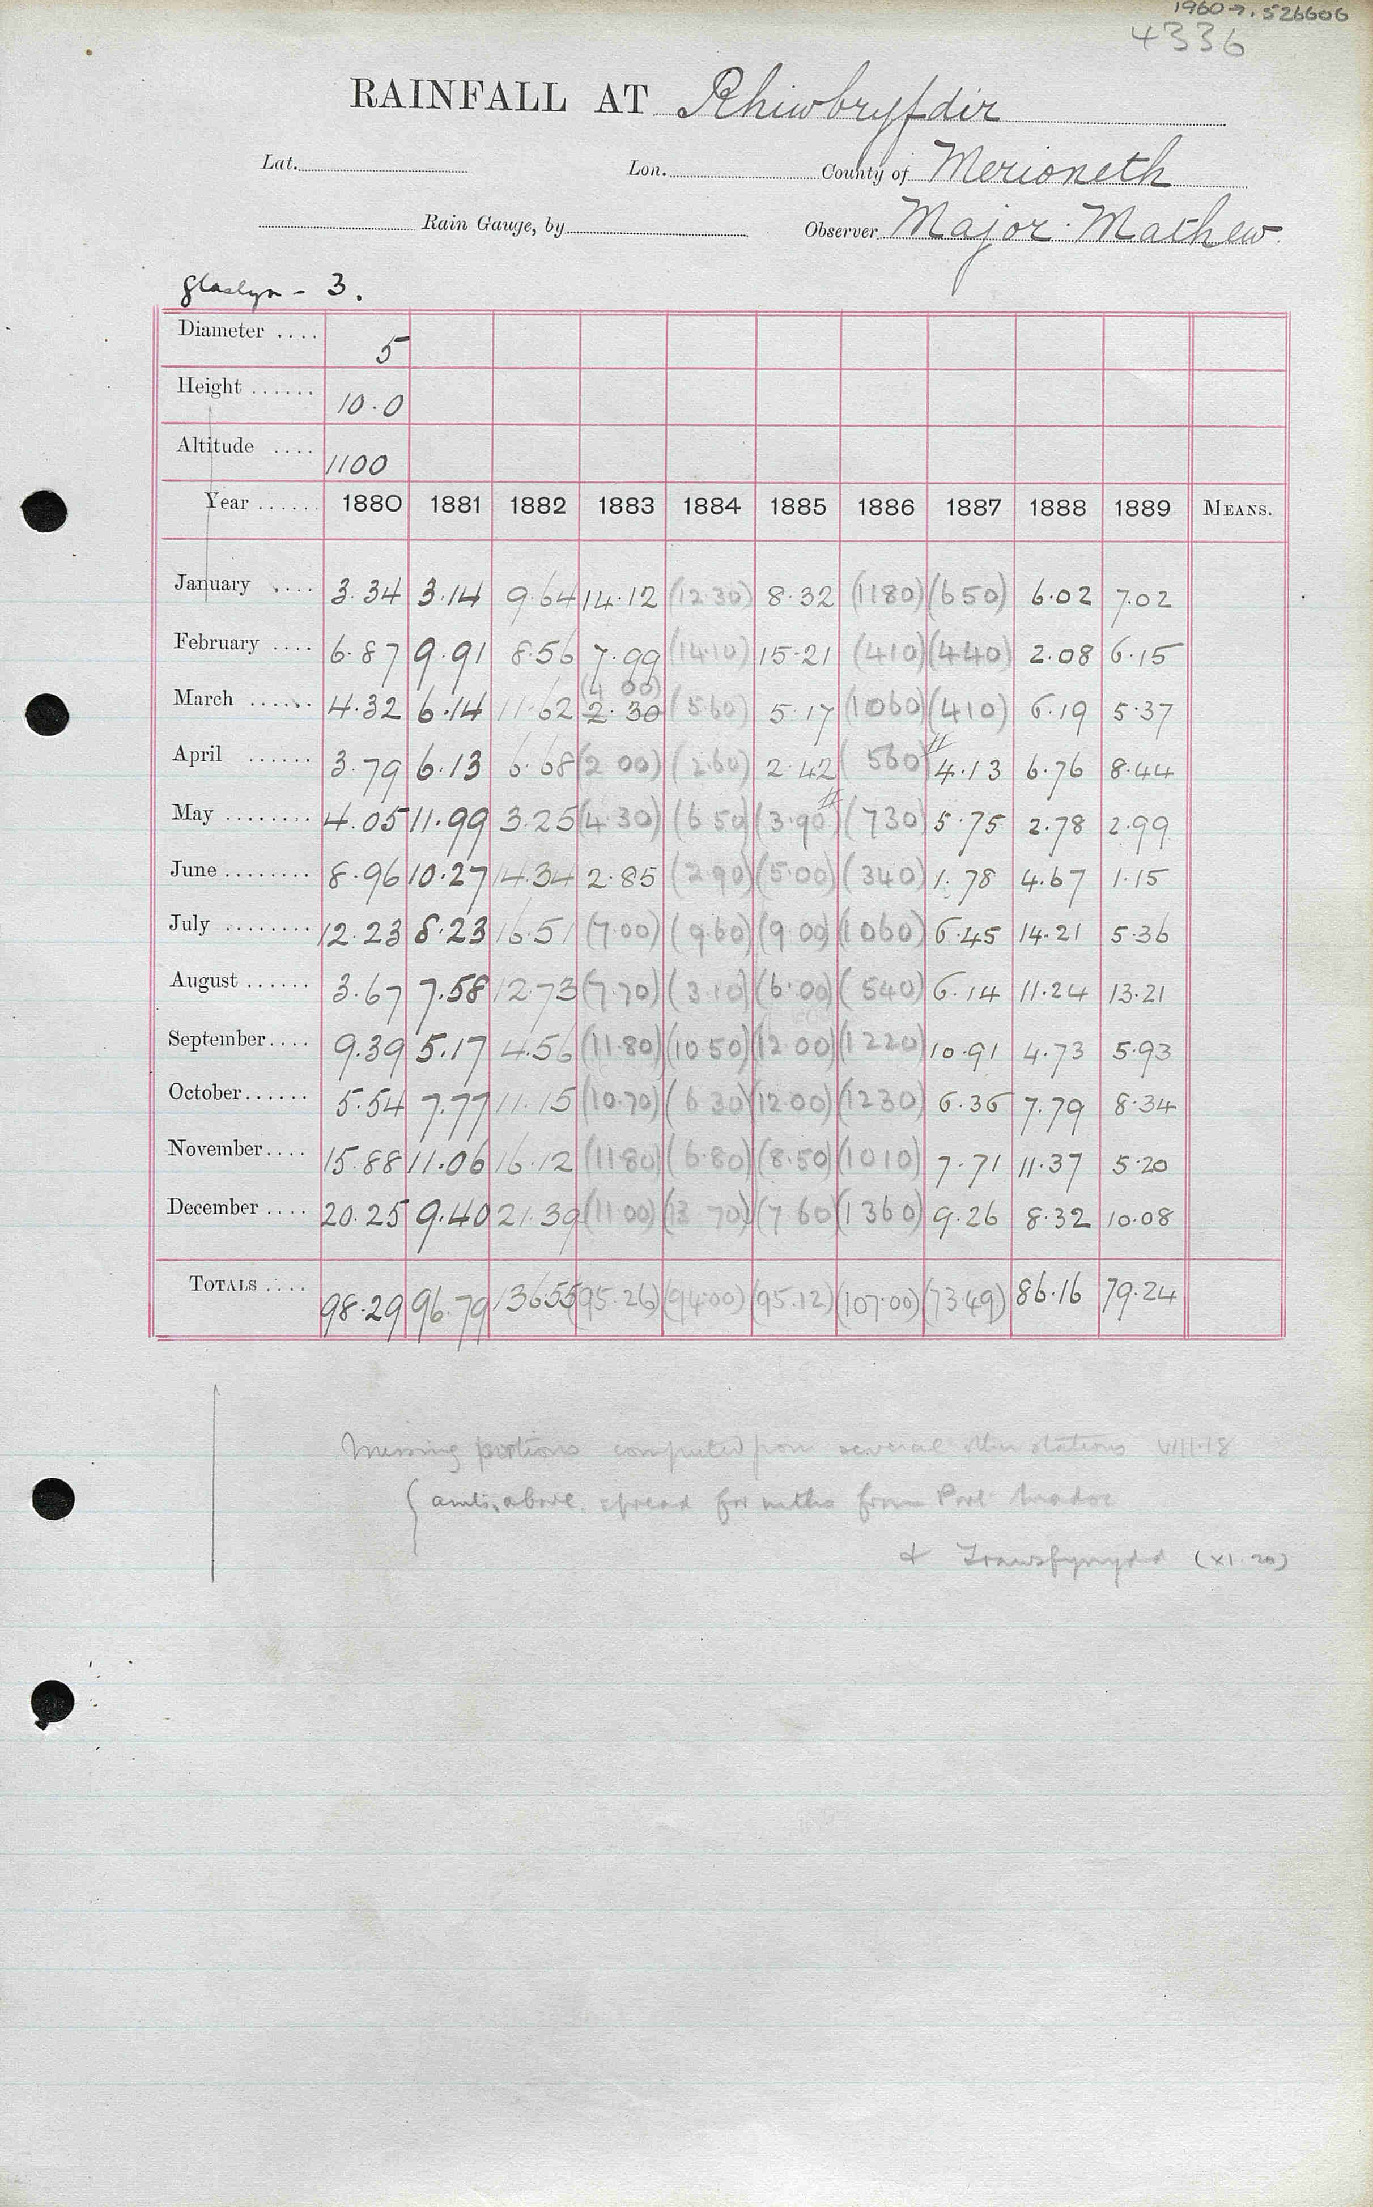 1960→. 526606
4336
RAINFALL AT Rhiwbryfdir
Lat. Lon. County of Merioneth
Rain Gauge, by Observer Major Mathew
Glaslyn - 3.
Diameter .... 5
Height ...... 10.0
Altitude .... 1100
Year ...... 1880 1881 1882 1883 1884 1885 1886 1887 1888 1889 MEANS.
January .... 3.34 3.14 9.64 14.12 (12.30) 8.32 (1180) (650) 6.02 7.02
February .... 6.87 9.91 8.56 7.99 (14.10) 15.21 (410) (440) 2.08 6.15
(4 00)
March ...... 4.32 6.14 11.62 2.30 (5.60) 5.17 (1060) (410) 6.19 5.37
April ...... 3.79 6.13 6.68 (2 00) (2.60) 2.42 (560) # 4.13 6.76 8.44
May ........ 4.05 11.99 3.25 (4.30) (6 50) (3.90) # (730) 5.75 2.78 2.99
June ........ 8.96 10.27 14.34 2.85 (2.90) (5.00) (340) 1.78 4.67 1.15
July ........ 12.23 8.23 16.51 (7.00) (9.60) (9 00) (1060) 6.45 14.21 5.36
August ...... 3.67 7.58 12.73 (7.70) (3.10) (6.00) (540) 6.14 11.24 13.21
September.... 9.39 5.17 4.56 (11.80) (10 50) (12 00) (1220) 10.91 4.73 5.93
October...... 5.54 7.77 11.15 (10.70) (6 30) (12 00) (1230) 6.36 7.79 8.34
November.... 15.88 11.06 16.12 (11 80) (6.80) (8.50) (1010) 7.71 11.37 5.20
December .... 20.25 9.40 21.39 (11 00) (13 70) (7.60) (1360) 9.26 8.32 10.08
TOTALS .... 98.29 96.79 136.55 (95.26) (94.00) (95.12) (107.00) (73.49) 86.16 79.24
Missing portions computed from several other stations VIII.18
{ amts. above spread for mths from Port Madoc
& Trawsfynydd (XI.20)